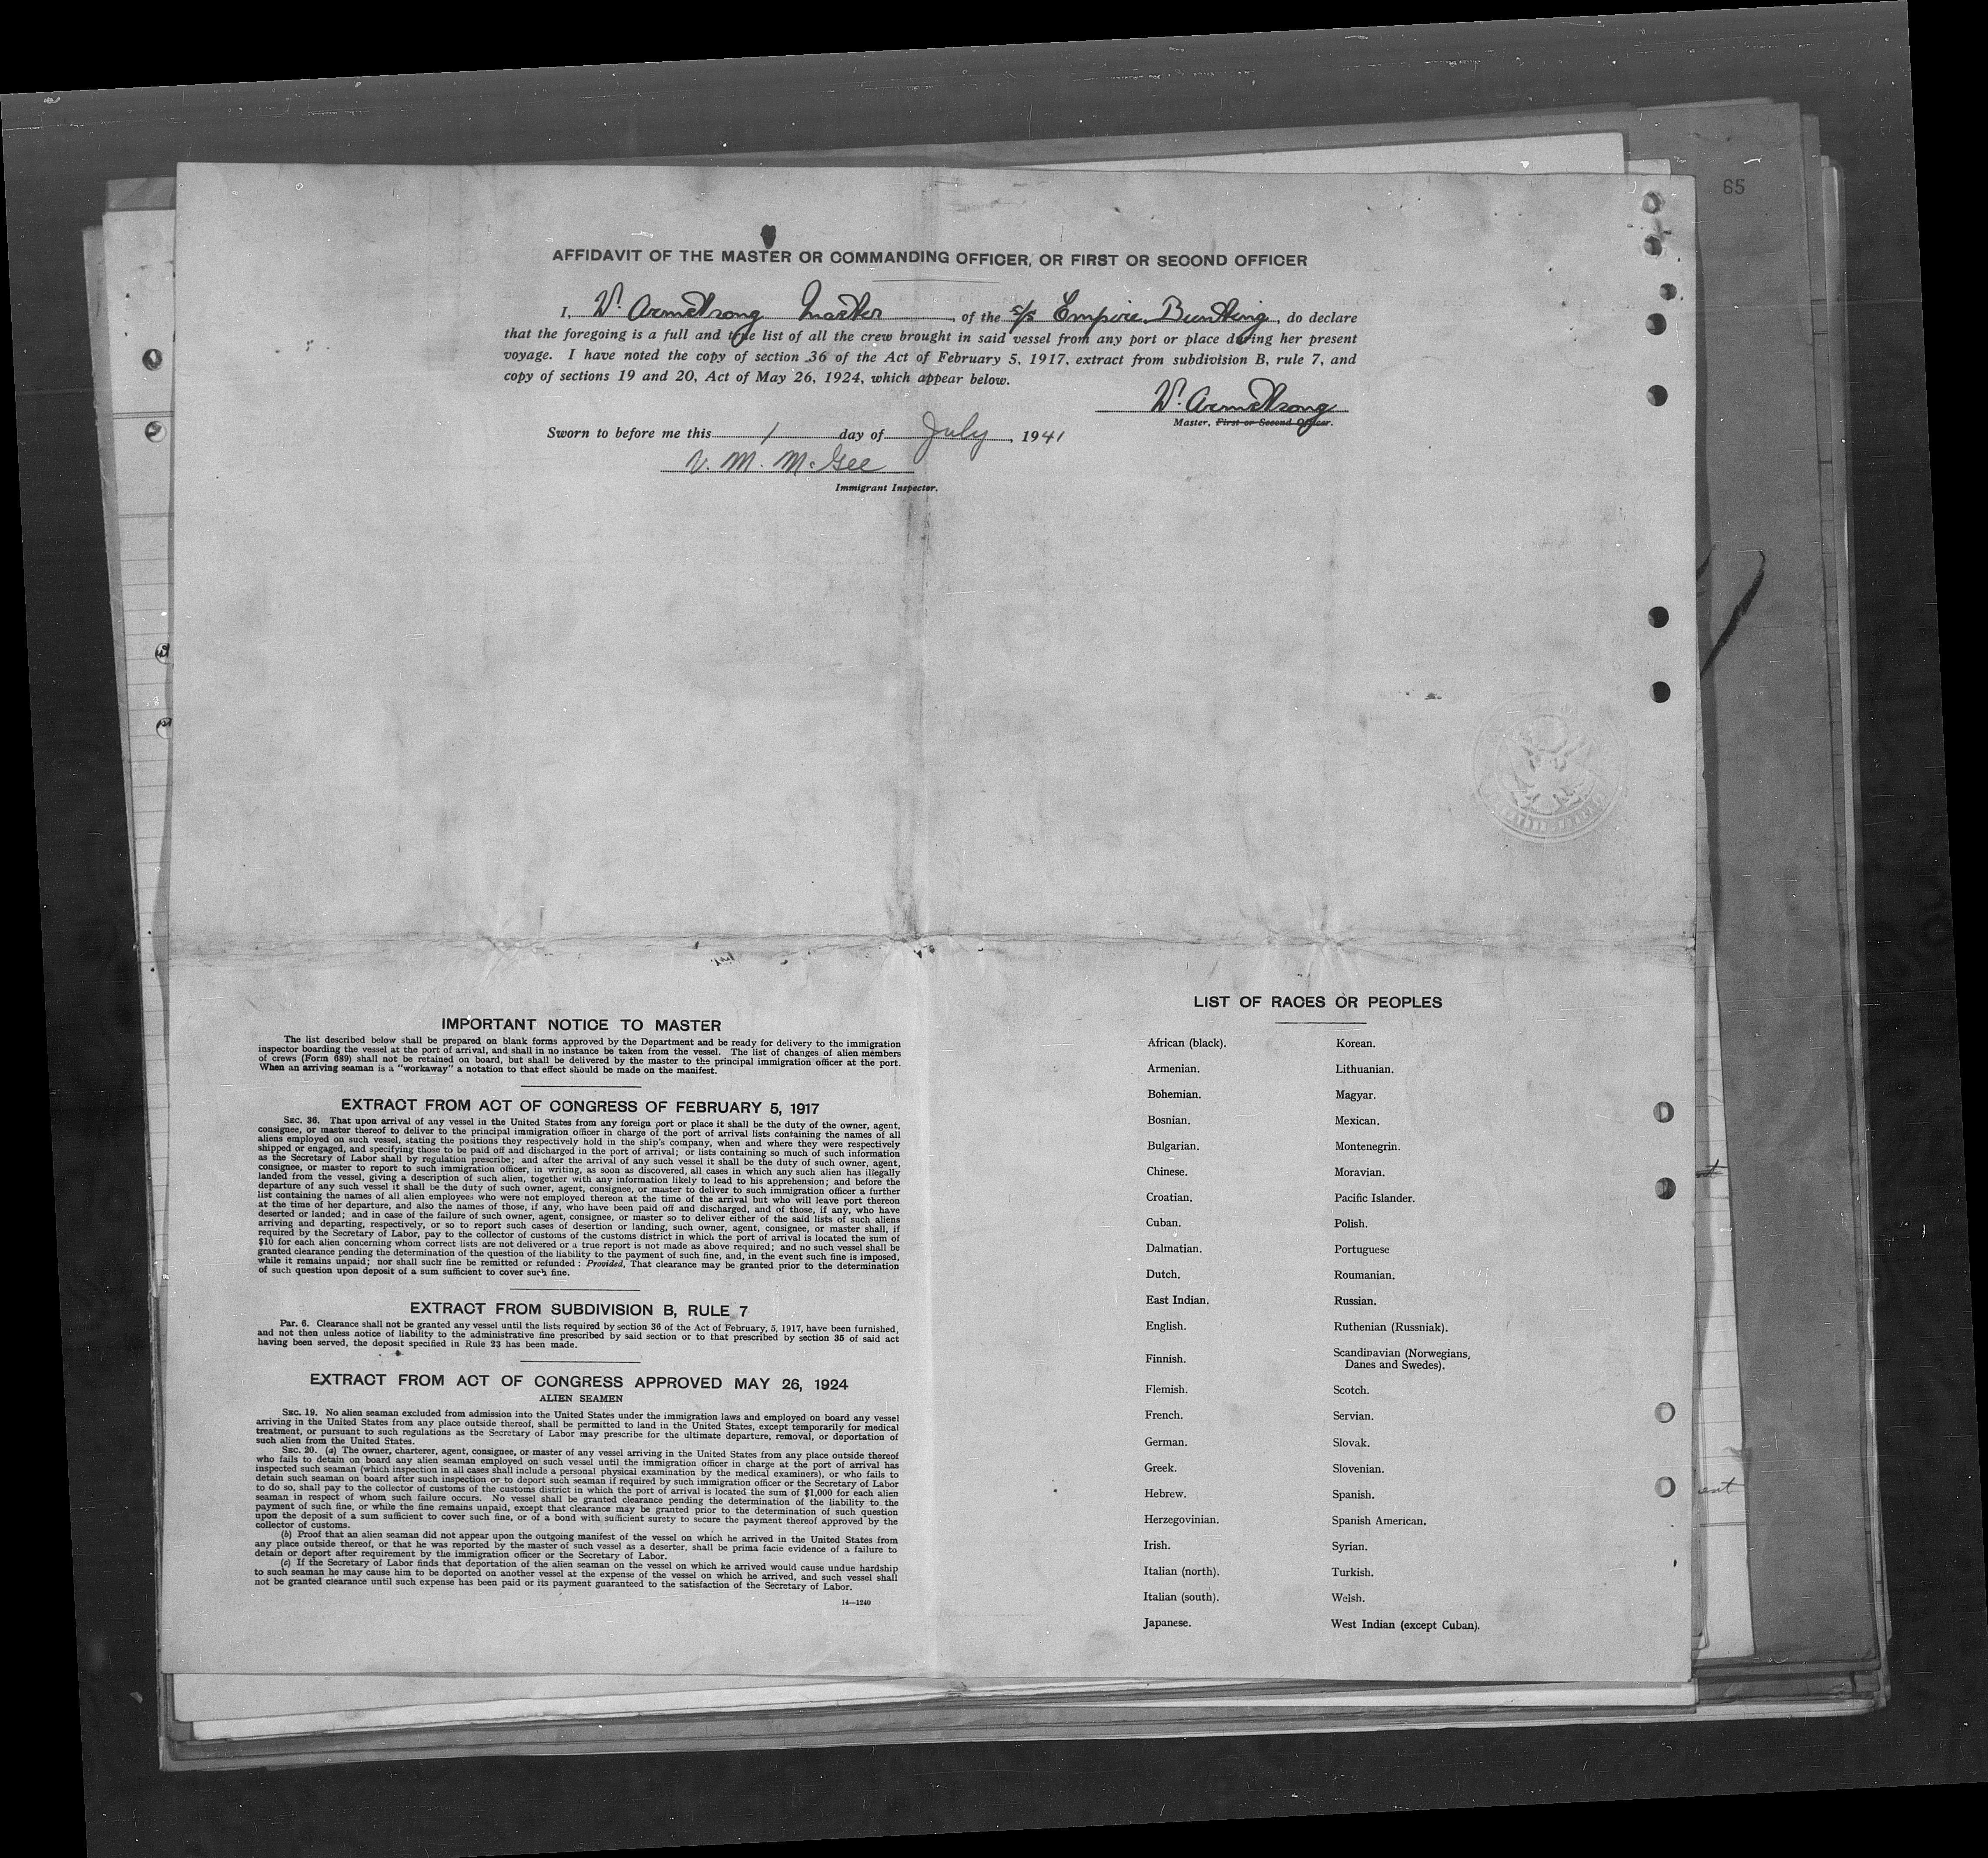 65
AFFIDAVIT OF THE MASTER OR COMMANDING OFFICER, OR FIRST OR SECOND OFFICER
I, W. Armstrong Master, of the s/s Empire Bunting, do declare
that the foregoing is a full and true list of all the crew brought in said vessel from any port or place during her present
voyage. I have noted the copy of section 36 of the Act of February 5, 1917, extract from subdivision B, rule 7, and
copy of sections 19 and 20, Act of May 26, 1924, which appear below.
W. Armstrong
Master, First or Second Officer.
Sworn to before me this 1 day of July, 1941
V. M. McGee
Immigrant Inspector.
IMPORTANT NOTICE TO MASTER
The list described below shall be prepared on blank forms approved by the Department and be ready for delivery to the immigration
inspector boarding the vessel at the port of arrival, and shall in no instance be taken from the vessel. The list of changes of alien members
of crews (Form 689) shall not be retained on board, but shall be delivered by the master to the principal immigration officer at the port.
When an arriving seaman is a "workaway" a notation to that effect should be made on the manifest.
EXTRACT FROM ACT OF CONGRESS OF FEBRUARY 5, 1917
SEC. 36. That upon arrival of any vessel in the United States from any foreign port or place it shall be the duty of the owner, agent,
consignee, or master thereof to deliver to the principal immigration officer in charge of the port of arrival lists containing the names of all
aliens employed on such vessel, stating the positions they respectively hold in the ship's company, when and where they were respectively
shipped or engaged, and specifying those to be paid off and discharged in the port of arrival; or lists containing so much of such information
as the Secretary of Labor shall by regulation prescribe; and after the arrival of any such vessel it shall be the duty of such owner, agent,
consignee, or master to report to such immigration officer, in writing, as soon as discovered, all cases in which any such alien has illegally
landed from the vessel, giving a description of such alien, together with any information likely to lead to his apprehension; and before the
departure of any such vessel it shall be the duty of such owner, agent, consignee, or master to deliver to such immigration officer a further
list containing the names of all alien employees who were not employed thereon at the time of the arrival but who will leave port thereon
at the time of her departure, and also the names of those, if any, who have been paid off and discharged, and of those, if any, who have
deserted or landed; and in case of the failure of such owner, agent, consignee, or master so to deliver either of the said lists of such aliens
arriving and departing, respectively, or so to report such cases of desertion or landing, such owner, agent, consignee, or master shall, if
required by the Secretary of Labor, pay to the collector of customs of the customs district in which the port of arrival is located the sum of
$10 for each alien concerning whom correct lists are not delivered or a true report is not made as above required; and no such vessel shall be
granted clearance pending the determination of the question of the liability to the payment of such fine, and, in the event such fine is imposed,
while it remains unpaid; nor shall such fine be remitted or refunded: Provided, That clearance may be granted prior to the determination
of such question upon deposit of a sum sufficient to cover such fine.
EXTRACT FROM SUBDIVISION B, RULE 7
Par. 6. Clearance shall not be granted any vessel until the lists required by section 36 of the Act of February, 5, 1917, have been furnished,
and not then unless notice of liability to the administrative fine prescribed by said section or to that prescribed by section 35 of said act
having been served, the deposit specified in Rule 23 has been made.
EXTRACT FROM ACT OF CONGRESS APPROVED MAY 26, 1924
ALIEN SEAMEN
SEC. 19. No alien seaman excluded from admission into the United States under the immigration laws and employed on board any vessel
arriving in the United States from any place outside thereof, shall be permitted to land in the United States, except temporarily for medical
treatment, or pursuant to such regulations as the Secretary of Labor may prescribe for the ultimate departure, removal, or deportation of
such alien from the United States.
SEC. 20. (a) The owner, charterer, agent, consignee, or master of any vessel arriving in the United States from any place outside thereof
who fails to detain on board any alien seaman employed on such vessel until the immigration officer in charge at the port of arrival has
inspected such seaman (which inspection in all cases shall include a personal physical examination by the medical examiners), or who fails to
detain such seaman on board after such inspection or to deport such seaman if required by such immigration officer or the Secretary of Labor
to do so, shall pay to the collector of customs of the customs district in which the port of arrival is located the sum of $1,000 for each alien
seaman in respect of whom such failure occurs. No vessel shall be granted clearance pending the determination of the liability to the
payment of such fine, or while the fine remains unpaid, except that clearance may be granted prior to the determination of such question
upon the deposit of a sum sufficient to cover such fine, or of a bond with sufficient surety to secure the payment thereof approved by the
collector of customs.
(b) Proof that an alien seaman did not appear upon the outgoing manifest of the vessel on which he arrived in the United States from
any place outside thereof, or that he was reported by the master of such vessel as a deserter, shall be prima facie evidence of a failure to
detain or deport after requirement by the immigration officer or the Secretary of Labor.
(c) If the Secretary of Labor finds that deportation of the alien seaman on the vessel on which he arrived would cause undue hardship
to such seaman he may cause him to be deported on another vessel at the expense of the vessel on which he arrived, and such vessel shall
not be granted clearance until such expense has been paid or its payment guaranteed to the satisfaction of the Secretary of Labor.
14—1240
LIST OF RACES OR PEOPLES
African (black).
Armenian.
Bohemian.
Bosnian.
Bulgarian.
Chinese.
Croatian.
Cuban.
Dalmatian.
Dutch.
East Indian.
English.
Finnish.
Flemish.
French.
German.
Greek.
Hebrew.
Herzegovinian.
Irish.
Italian (north).
Italian (south).
Japanese.
Korean.
Lithuanian.
Magyar.
Mexican.
Montenegrin.
Moravian.
Pacific Islander.
Polish.
Portuguese
Roumanian.
Russian.
Ruthenian (Russniak).
Scandinavian (Norwegians,
Danes and Swedes).
Scotch.
Servian.
Slovak.
Slovenian.
Spanish.
Spanish American.
Syrian.
Turkish.
Welsh.
West Indian (except Cuban).